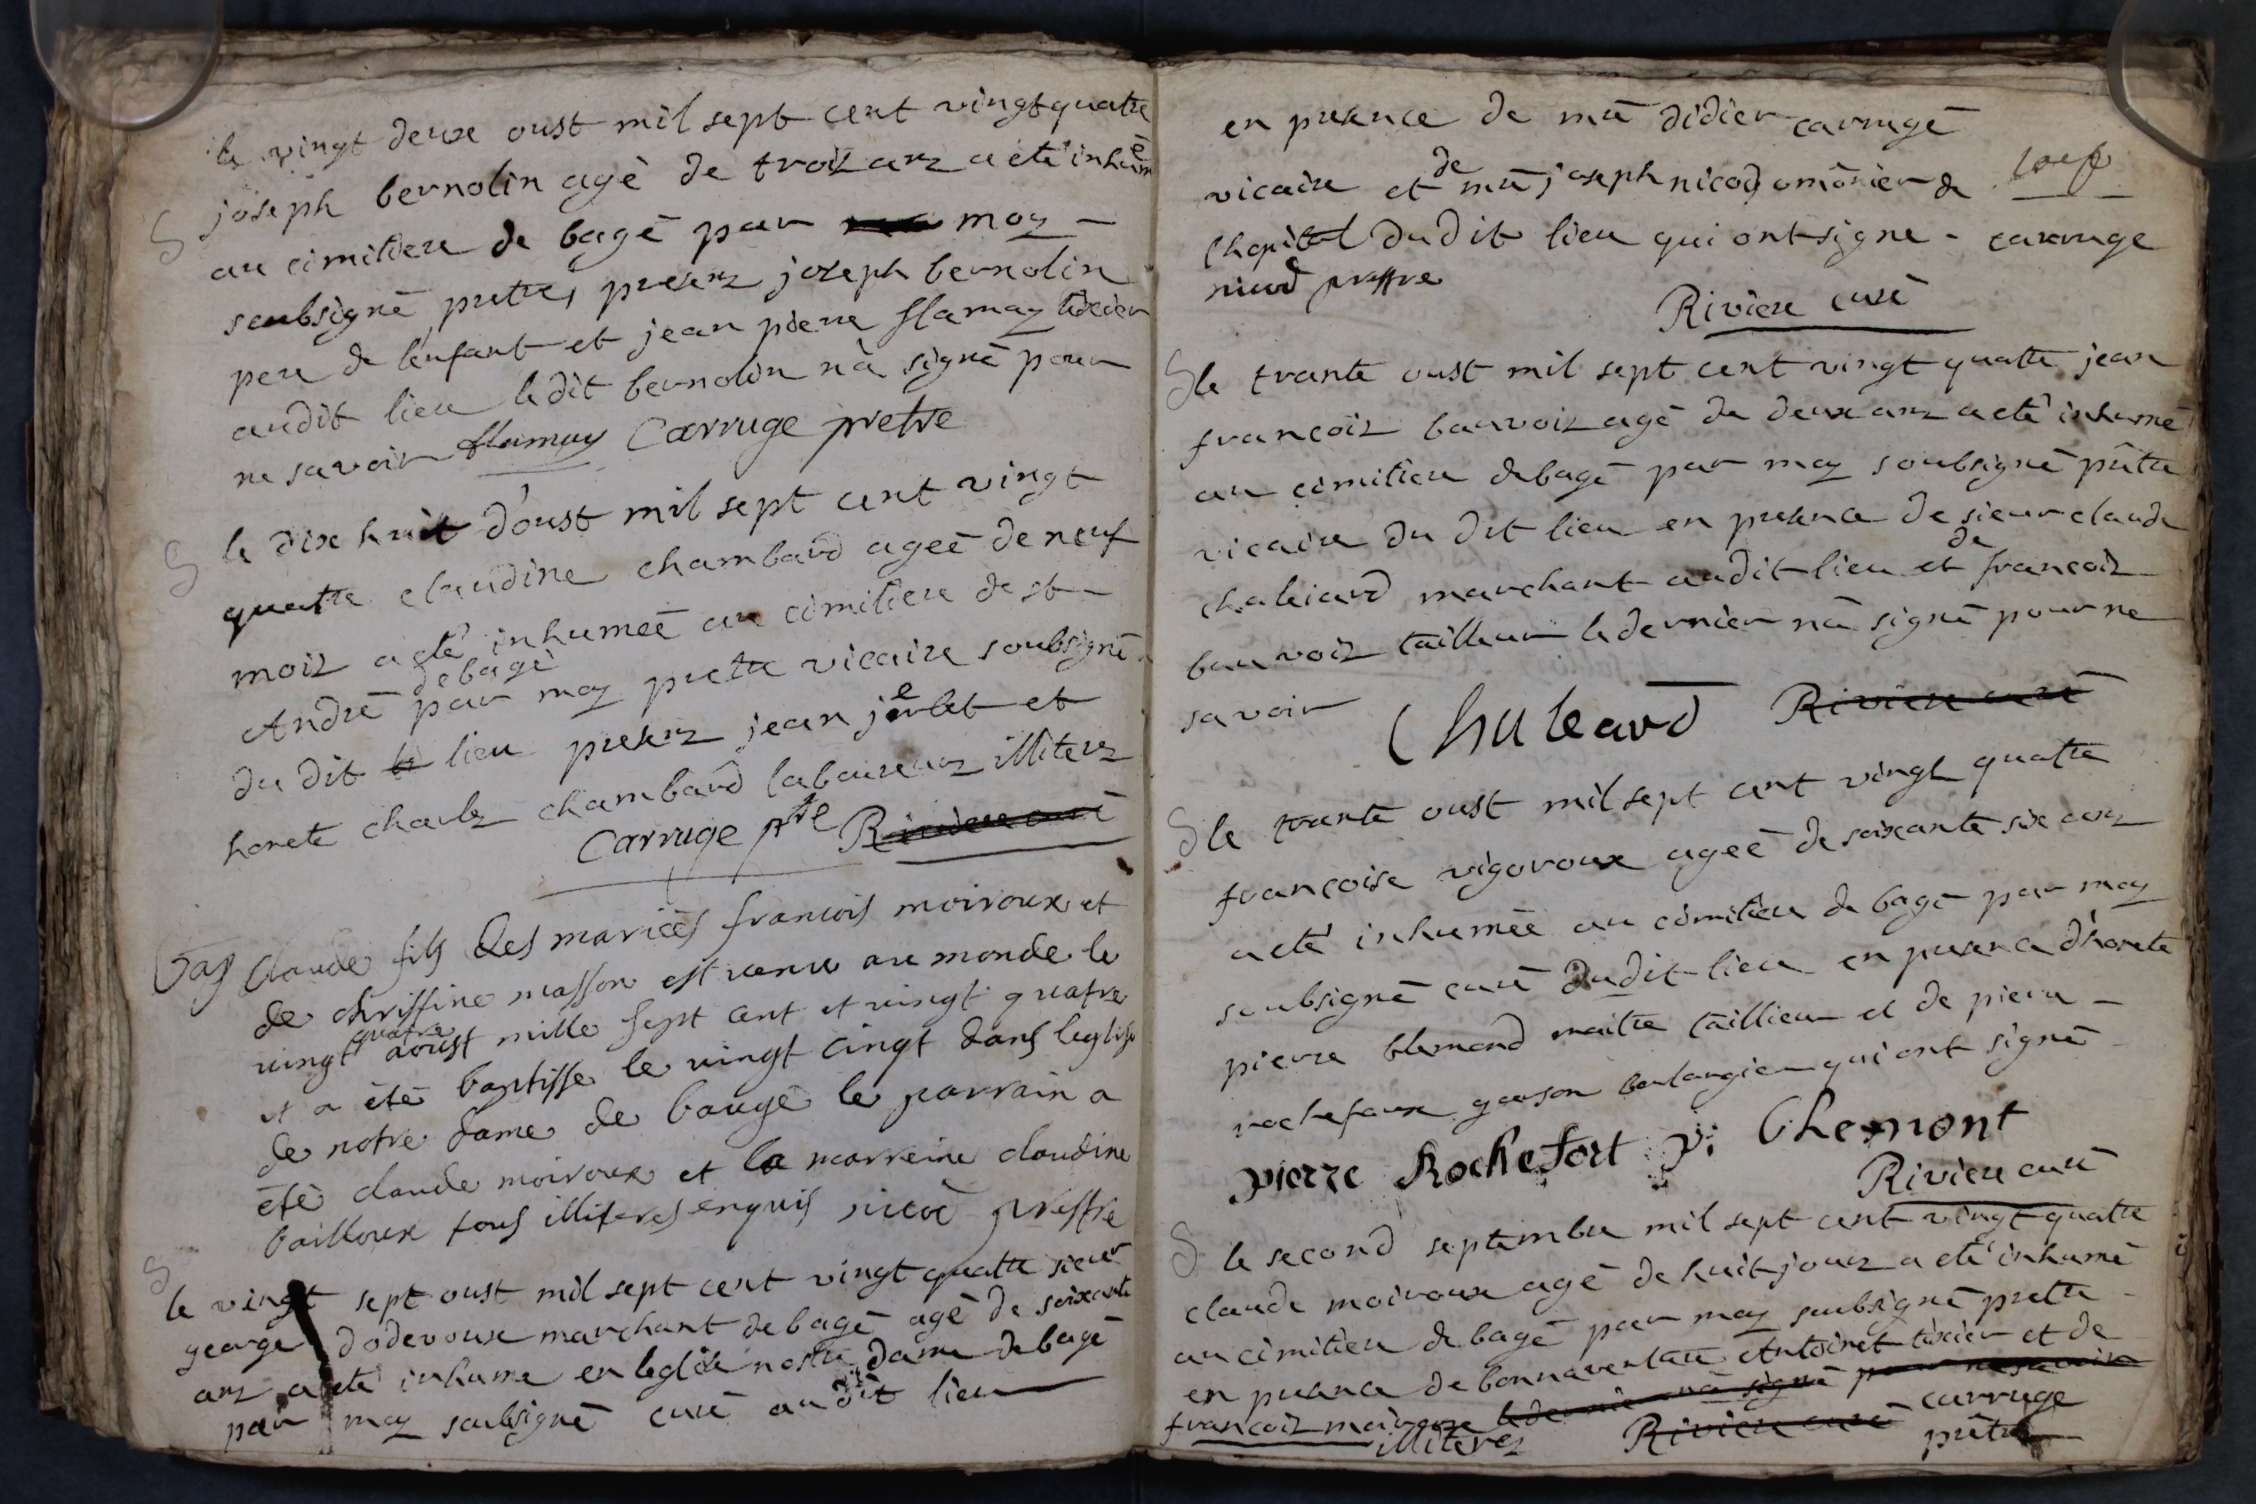 S
le vingt deux oust mil sept cent vingt quatre
joseph bernolin agé de trois ans a eté inhumé
au cimitiere de bagé par moy
soubsigné pretre, presens joseph bernolin
pere de lenfant et jean pierre flamay tixier
audit lieu ledit bernolin na signé pour
ne savoir flamay Carruge pretre
S
le dix huit d'oust mil sept cent vingt
quatre claudine chambard ageé de neuf
mois a eté inhumeé au cimitiere de st
André de bagé par moy pretre vicaire soubsigné
du dit le lieu presens jean jerlet et
honete charles chambard laboureurs illiteres
Carruge ptre Riviere curé
Bap Claude fils des mariées francois moiroux et
de christine masson est venu au monde le
vingt quatre aoust mille sept cent et vingt quatre
et a été baptisse le vingt cinqt dans leglise
de notre dame de baugé le parrain a
été claude moiroux et la marreine claudine
bailloux tous illiteres enquis nicod prestre
S
le vingt sept oust mil sept cent vingt quatre sieur
george dodevoux marchant de bagé agé de soixante
ans a eté inhume en leglise nostre dame de bagé
par moy soubsigné curé audit lieu
en presence de mre didier carrugé
vicaire et de mre joseph nicod, omônier de
lhopital dudit lieu qui ont signe - carruge
nicod prestre
Riviere curé
S le trante oust mil sept cent vingt quatre jean
françois bauvois agé de deux ans a eté inhumé
au cimitiere de bagé par moy soubsigné prêtre
vicaire du dit lieu en presence de sieur claude
chaleard marchant audit lieu et de françois
bauvois tailleur le dernier na signé pour ne
savoir Chaleard Riviere curé
S le trante oust mil sept cent vingt quatre
françoise vigoroux ageé de soixante six ans
a eté inhumée au cimitiere de bagé par moy
soubsigné curé dudit lieu en presence d'honete
pierre blemond maitre taillieur et de pierre
rochefoux garson boulangier qui ont signé
pierre Rochefort P: blemont
Riviere curé
S le second septembre mil sept cent vingt quatre
claude moiroux agé de huit jours a eté inhumé
au cimitiere de bagé par moy soubsigné pretre
en presence de bonnaventure Antoinet tixier et de
françois moiroux le dernier na signé pour ne savoir
illiteres Riviere curé carruge
prêtre